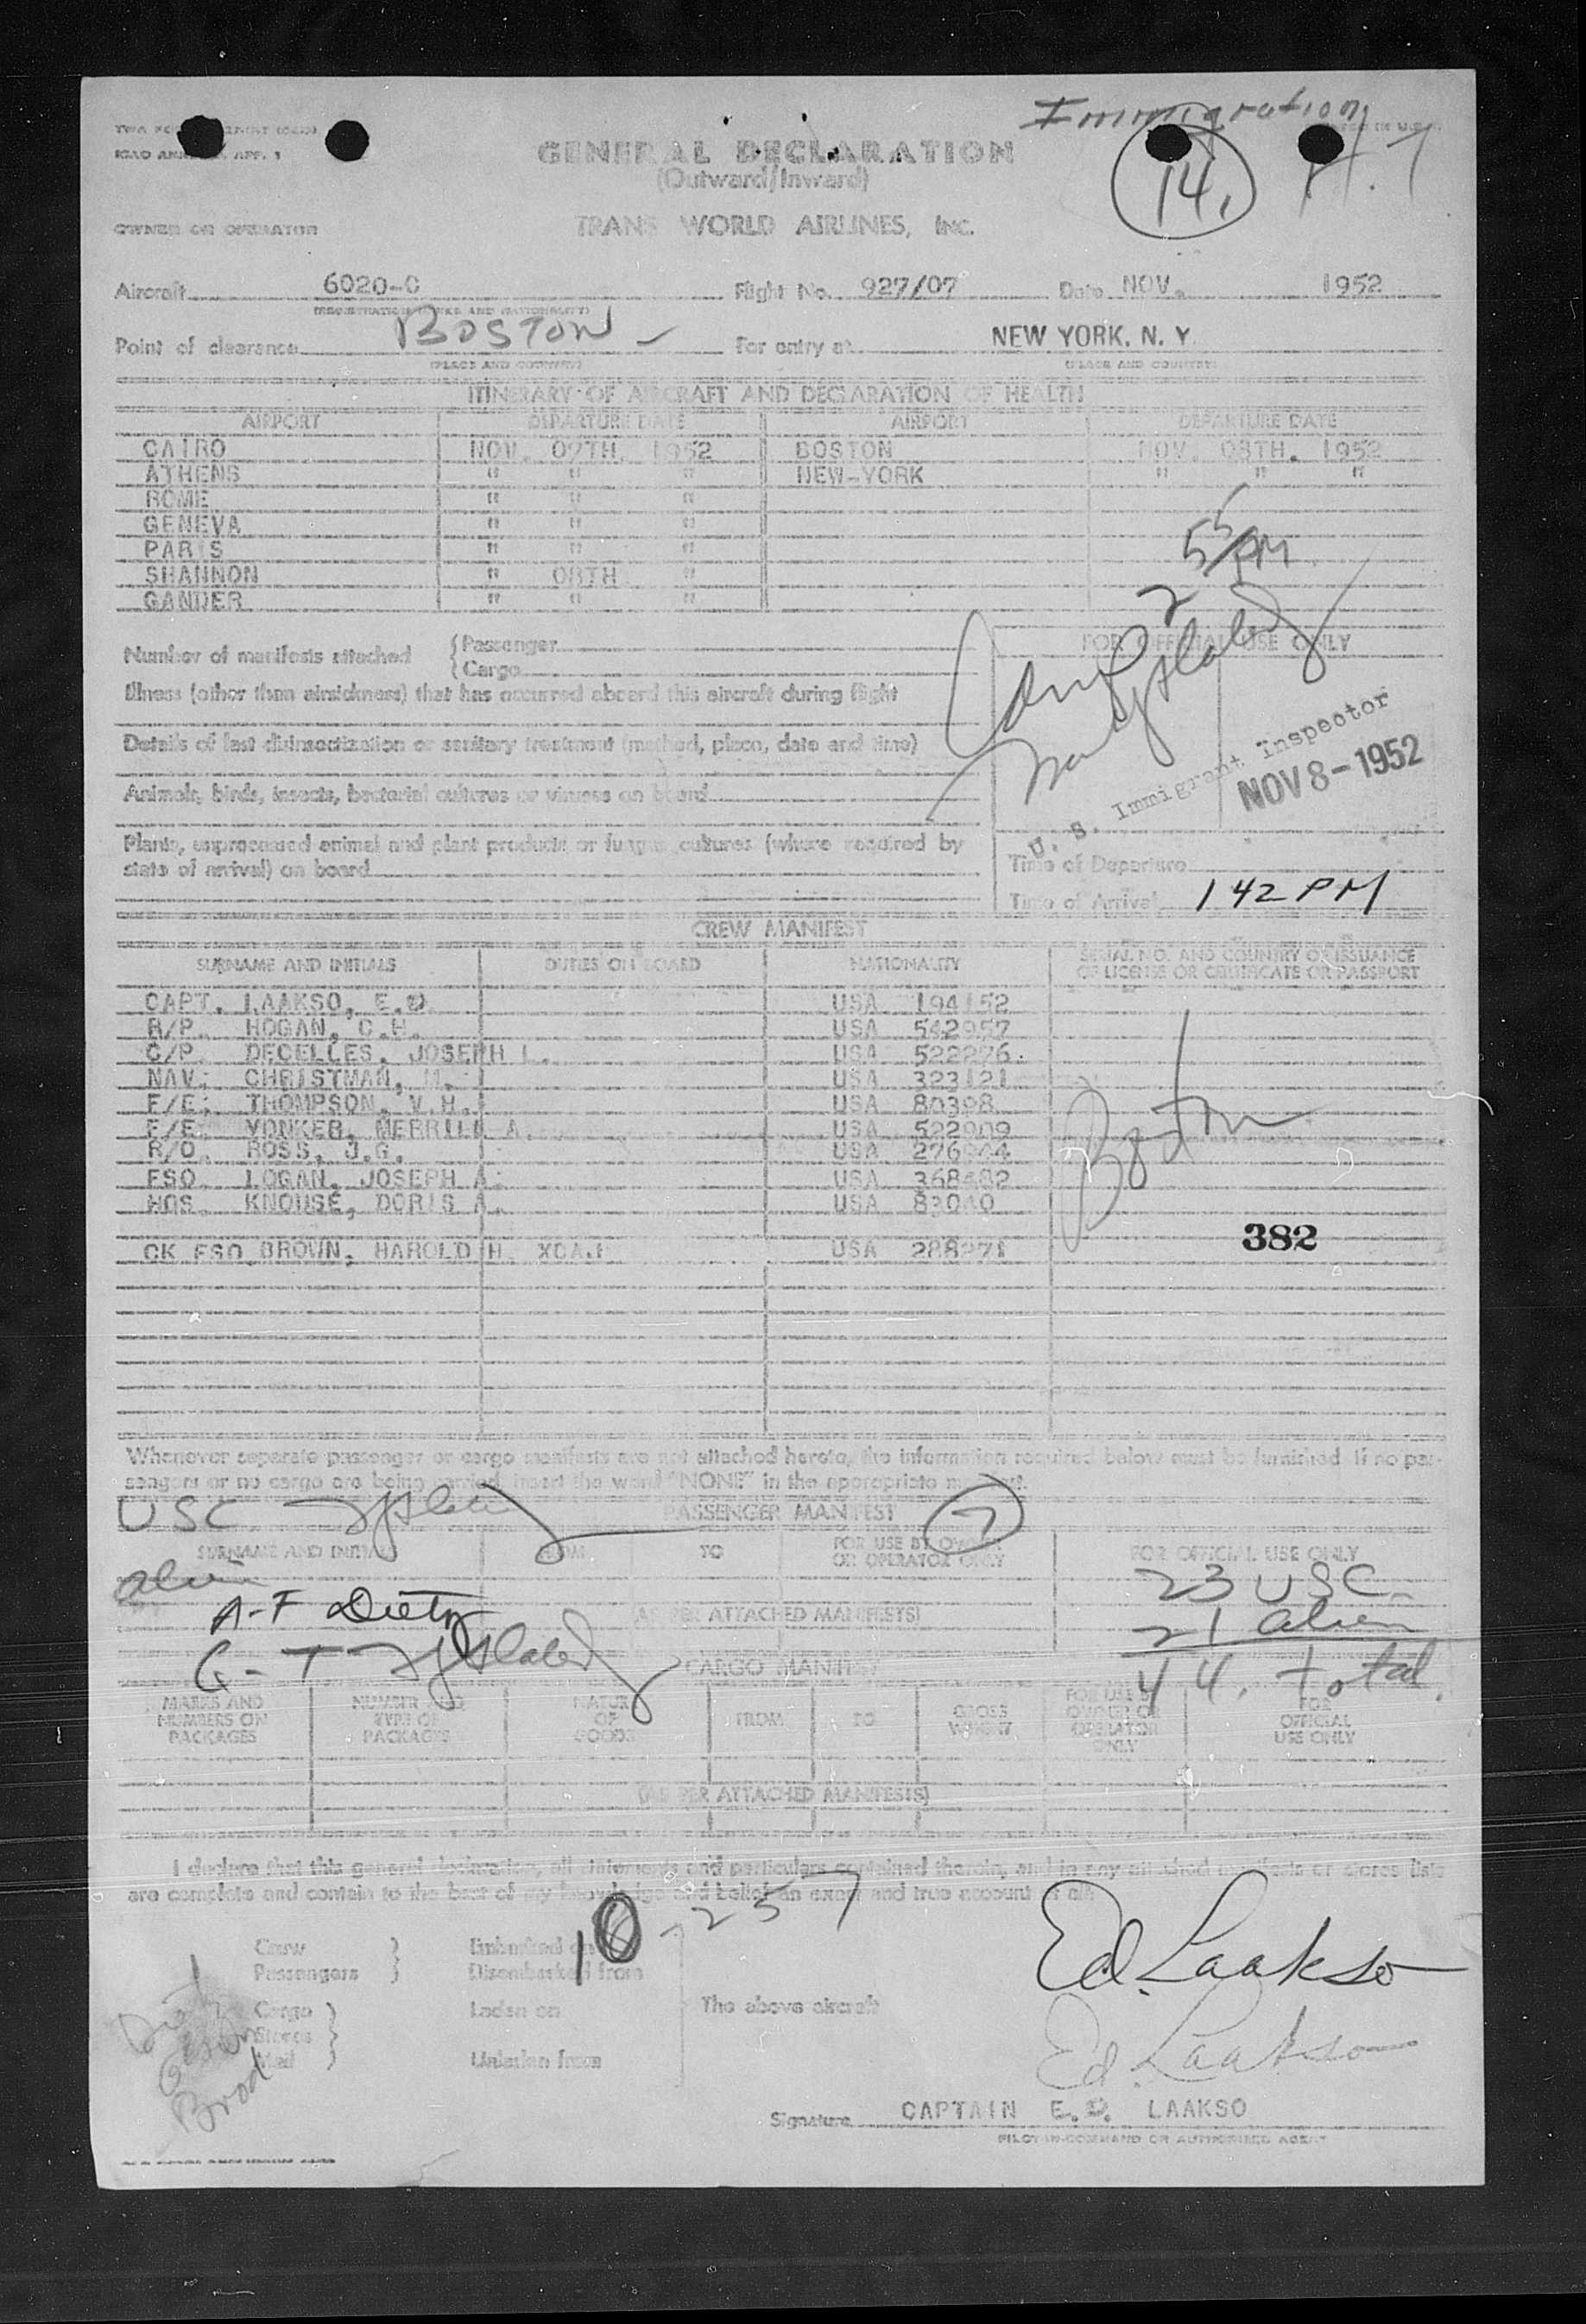 Immigration
ICAO ANNEX 9, APP. 1
GENERAL DECLARATION
(Outward/Inward)
14.
OWNER OR OPERATOR TRANS WORLD AIRLINES, INC.
Aircraft 6020-C Flight No. 927/07 Date NOV. 1952
Point of clearance BOSTON - For entry at NEW YORK. N. Y.
(PLACE AND COUNTRY) (PLACE AND COUNTRY)
ITINERARY OF AIRCRAFT AND DECLARATION OF HEALTH
AIRPORT DEPARTURE DATE AIRPORT DEPARTURE DATE
CAIRO NOV. 07TH. 1952 BOSTON NOV. 08TH. 1952
ATHENS " " " NEW-YORK " " "
ROME " " "
GENEVA " " "
PARIS " " "
SHANNON " 08TH "
GANDER " " "
Number of manifests attached { Passenger
{ Cargo
FOR OFFICIAL USE ONLY
Illness (other than airsickness) that has occurred aboard this aircraft during flight
Details of last disinsectization or sanitary treatment (method, place, date and time)
U. S. Immigrant Inspector
NOV 8-1952
Animals, birds, insects, bacterial cultures or viruses on board
Plants, unprocessed animal and plant products or fungus cultures (where required by
state of arrival) on board
Time of Departure
Time of Arrival 1 42 PM
CREW MANIFEST
SURNAME AND INITIALS DUTIES ON BOARD NATIONALITY SERIAL NO. AND COUNTRY OF ISSUANCE
OF LICENSE OR CERTIFICATE OR PASSPORT
CAPT. LAAKSO, E.D. USA 194152
R/P. HOGAN, C.H. USA 542957
C/P. DECELLES, JOSEPH L. USA 522276.
NAV. CHRISTMAN, M. USA 323121
F/E. THOMPSON, V.H. USA 80398
F/E. YONKER, MERRILL A. USA 522909
R/O. ROSS, J.G. USA
FSO. LOGAN, JOSEPH A. USA 368482
HOS. KNOUSE, DORIS A. USA
Boston
382
CK FSO BROWN, HAROLD H. USA 288271
Whenever separate passenger or cargo manifests are not attached hereto, the information required below must be furnished. If no pas-
sengers or no cargo are being carried, insert the word "NONE" in the appropriate manifest.
USC
PASSENGER MANIFEST 7
SURNAME AND INITIALS FROM TO FOR USE BY OWNER
OR OPERATOR ONLY FOR OFFICIAL USE ONLY
alien
23 USC
A-F Dietz
(AS PER ATTACHED MANIFESTS)
21 alien
G-T
CARGO MANIFEST
44. total.
MARKS AND
NUMBERS ON
PACKAGES NUMBER AND
TYPE OF
PACKAGES NATURE
OF
GOODS FROM TO GROSS
WEIGHT FOR USE BY
OWNER OR
OPERATOR
ONLY FOR
OFFICIAL
USE ONLY
(AS PER ATTACHED MANIFESTS)
I declare that this general declaration, all statements and particulars contained therein, and in any attached manifests or stores lists
are complete and contain to the best of my knowledge and belief an exact and true account of all
10-257
Crew
Passengers } Embarked on
Disembarked from
Ed. Laakso
Cargo
Stores
Mail } Laden on
Unladen from
The above aircraft
Ed. Laakso
Signature CAPTAIN E.D. LAAKSO
PILOT-IN-COMMAND OR AUTHORIZED AGENT